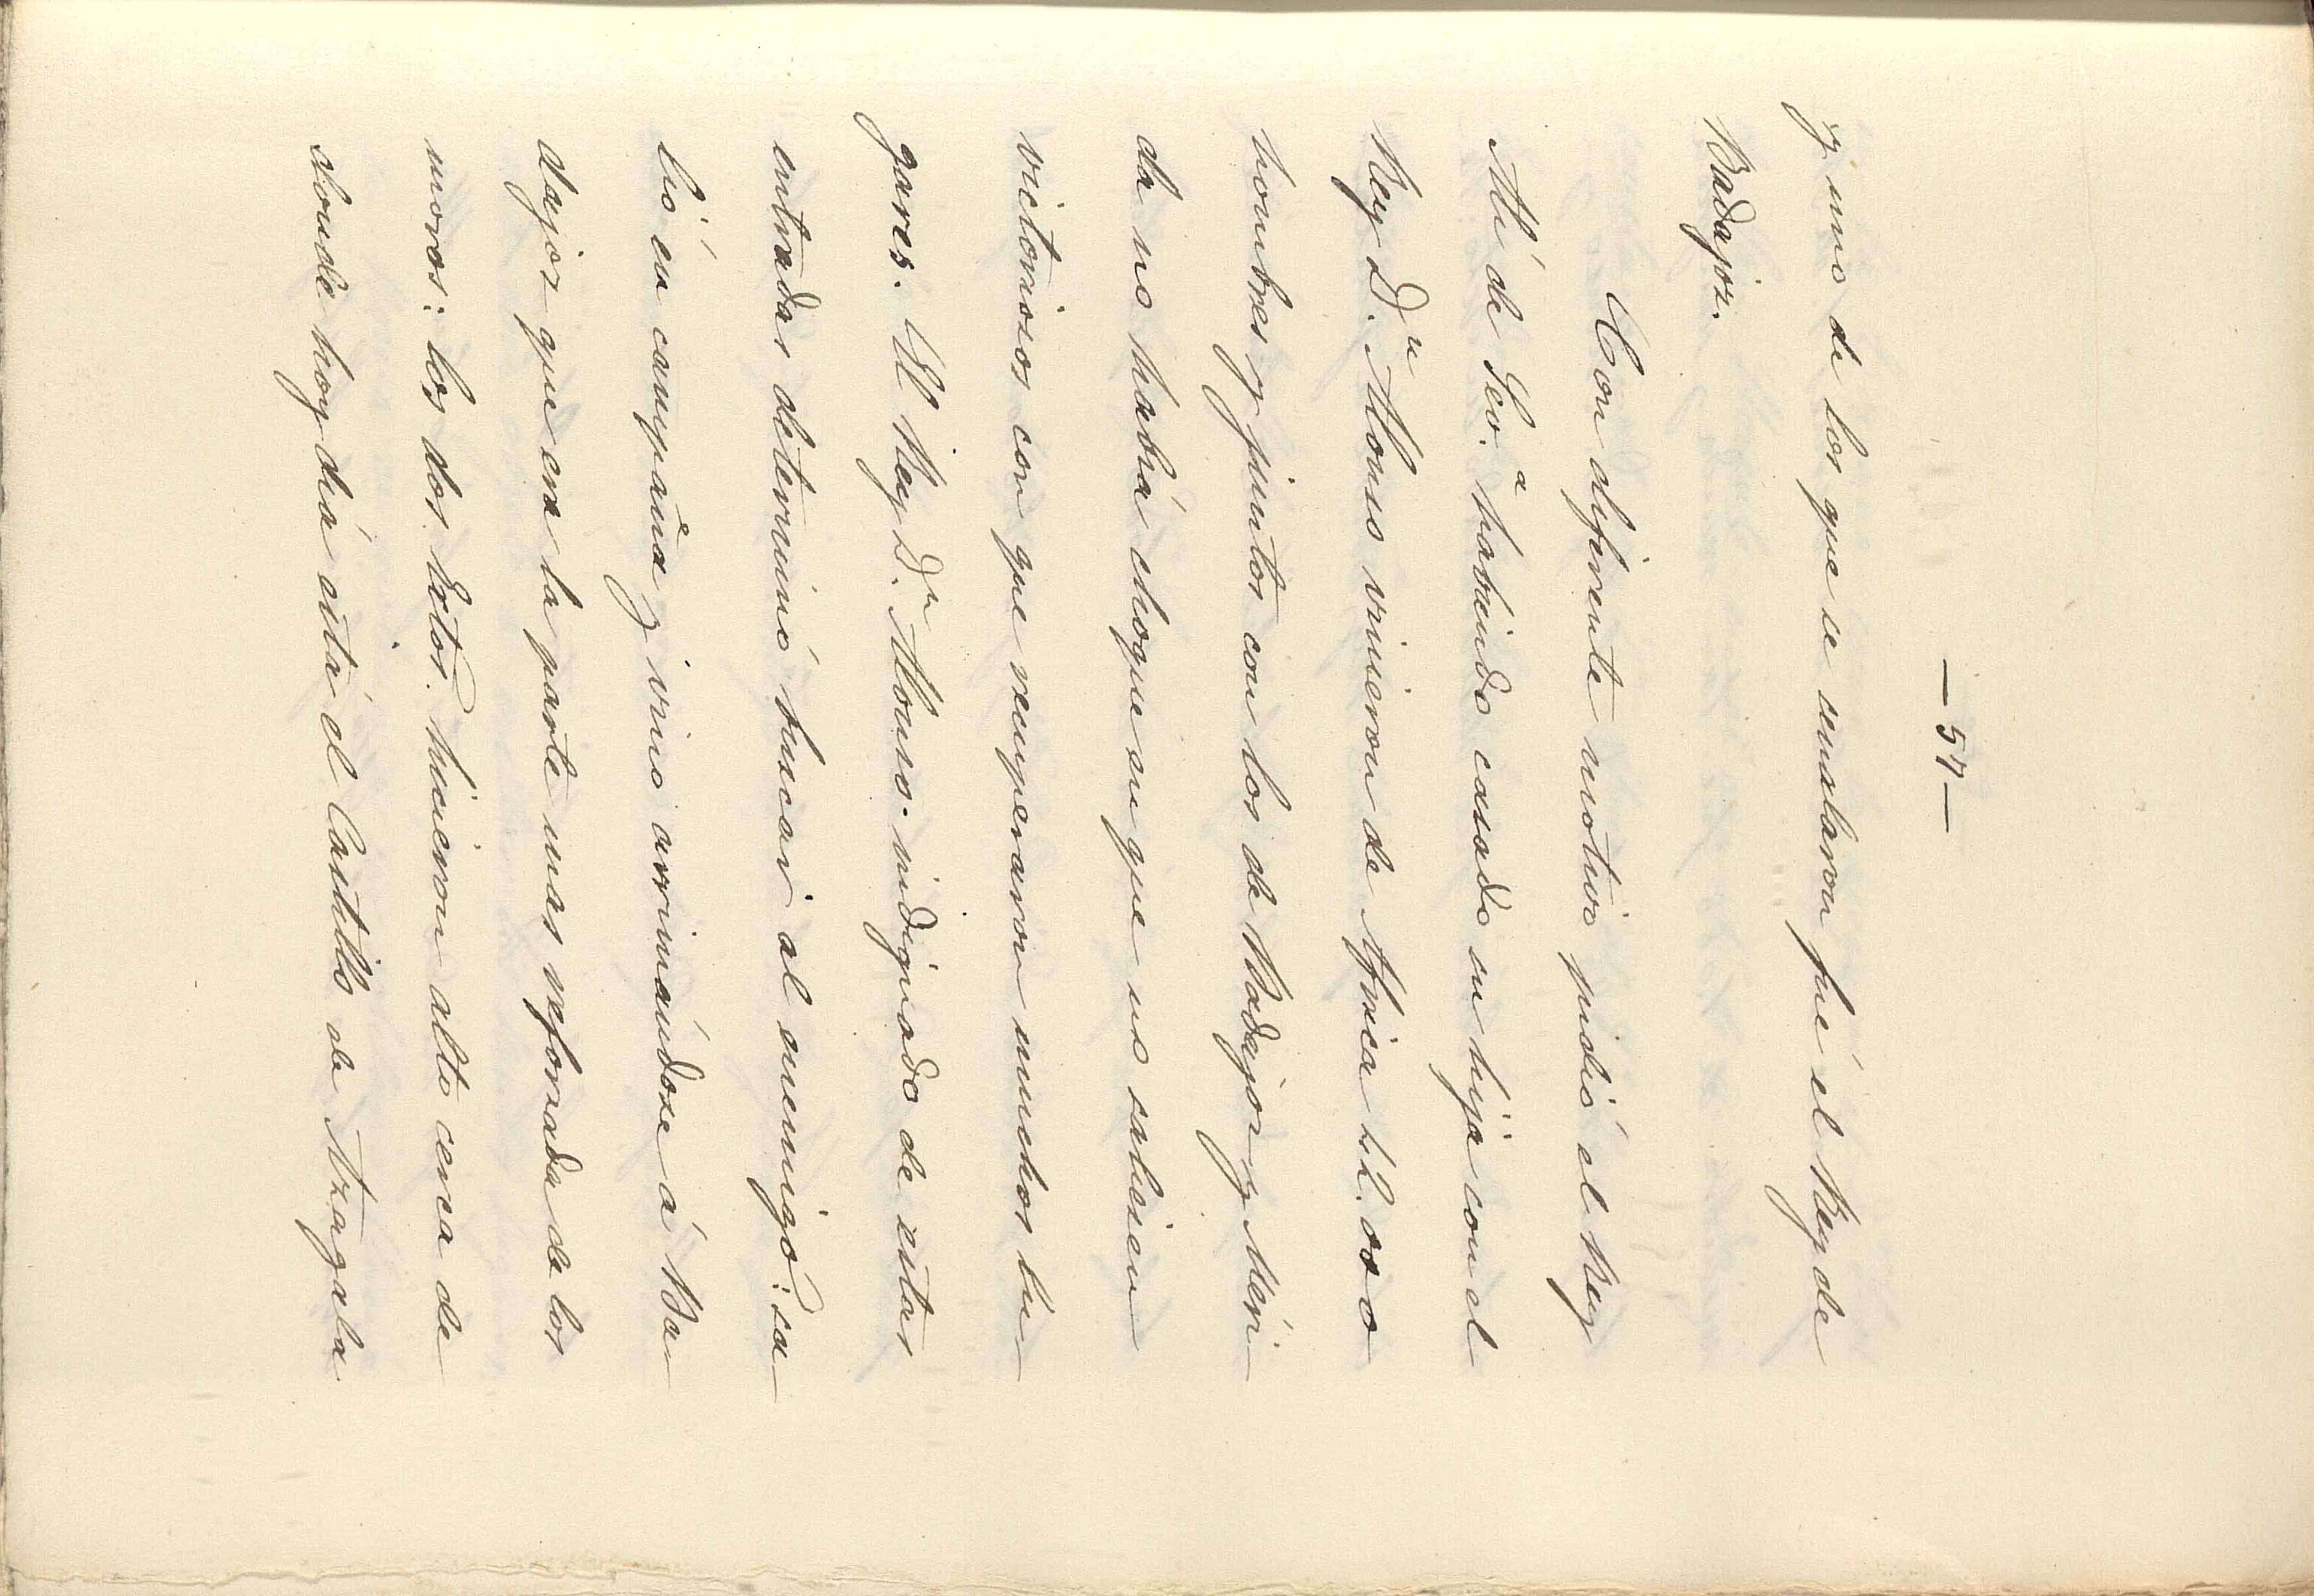 — 57 —
y uno de los que se mataron fué el Rey de
Badajoz.
Con diferente motivo pidió el Rey
Alí de Sev.ª habiendo casado su hija con el
Rey D.ⁿ Alonso vinieron de Africa
hombres y juntos con los de Badajoz y Méri
da no habia choque en que no saliesen
victoriosos con que recuperaron muchos lu
gares. El Rey D.ⁿ Alonso indignado de estas
entradas determinó buscar al enemigo: sa
lió en campaña y vino arrimándose á Ba
dajoz que era la parte mas reforzada de los
moros: los dos Ertos. hicieron alto cerca de
donde hoy dia está el Castillo de Azagala